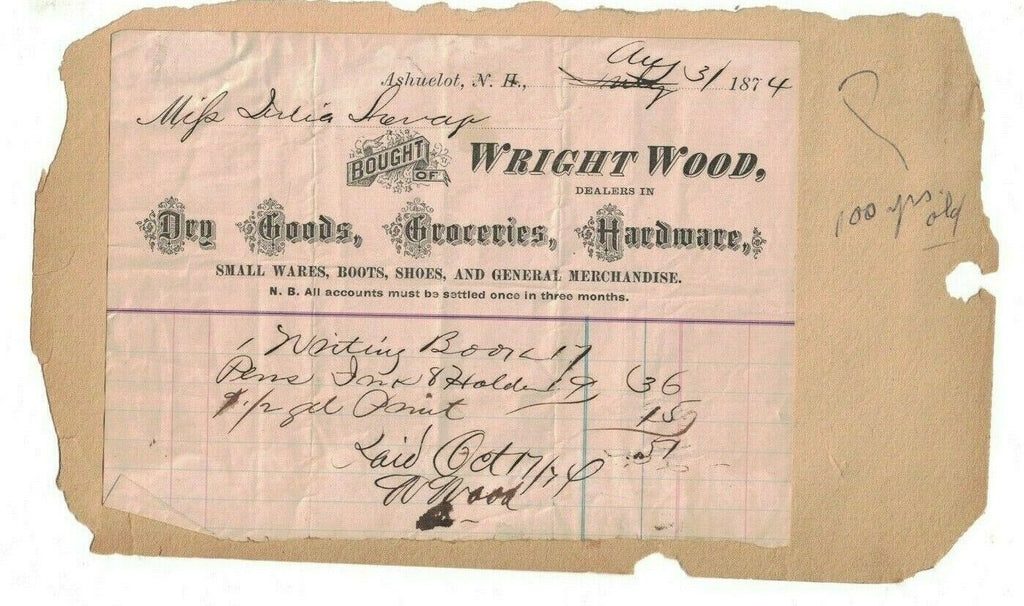 Ashuelot, N. H., Aug 31 1874
Miss Julia
BOUGHT OF WRIGHT WOOD,
DEALERS IN
Dry Goods, Groceries, Hardware,
SMALL WARES, BOOTS, SHOES, AND GENERAL MERCHANDISE.
N. B. All accounts must be settled once in three months.
1 Writing Book 17
Pens Ink & Holder 19 36
Print 15
51
Paid Oct 17/74
W Wood
100 yrs old